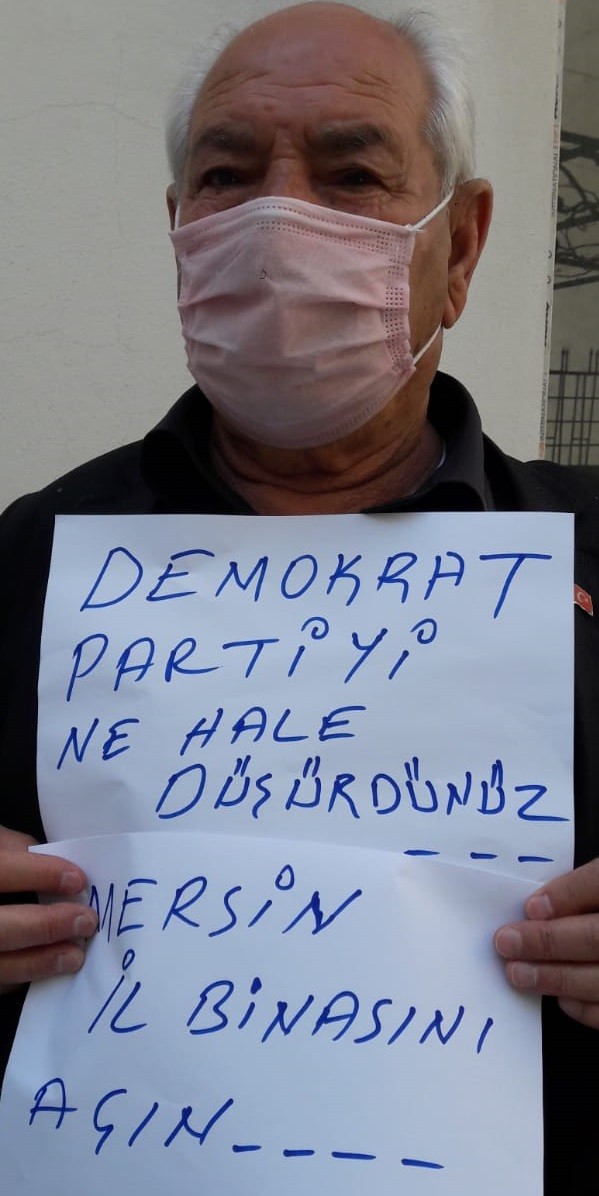 DEMOKRAT
PARTİYİ
NE HALE
DÜŞÜRDÜNÜZ
_ _ _
MERSİN
İL BİNASINI
AÇIN_ _ _ _